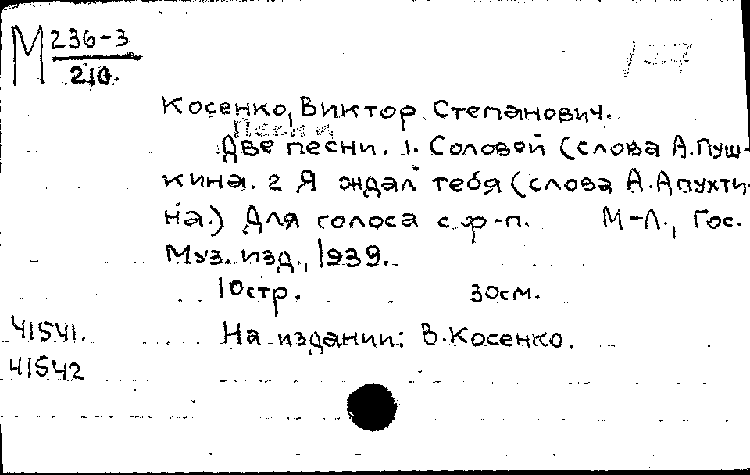 М 236-3
210.
127
Косенко, Виктор Степанович.
Песни
Две песни. 1. Соловей (слова А.Пуш-
кина. 2 Я ждал тебя (слова А.Апухти-
на.) Для голоса с ф-п. М-Л., Гос.
Муз. изд., 1939.
10стр. 30см.
41541. На издании: В.Косенко.
41542